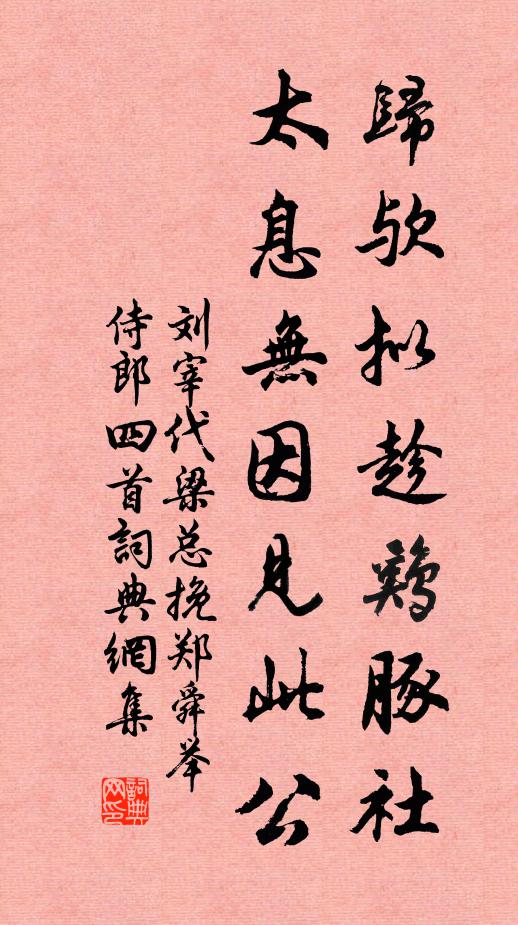 歸欤拟趁鷄豚社
太息無因見此公
刘宰代梁总挽郑舜举
侍郎四首詞典網集
詞典網印